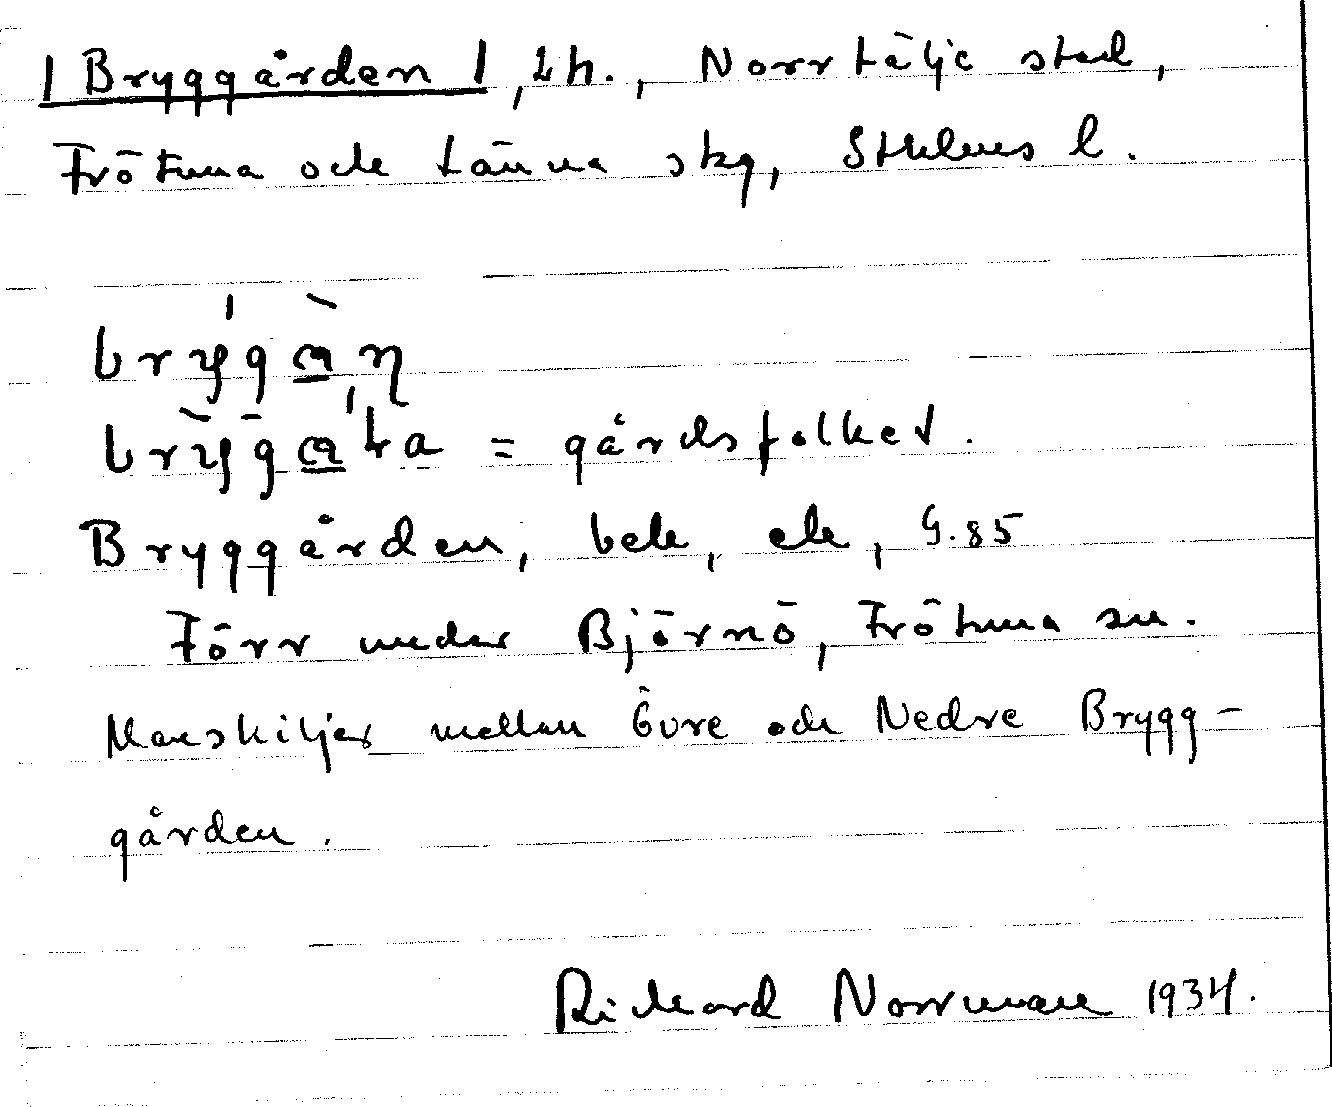 /Bryggården/, lh., Norrtälje stad,
Frötuna och Länna skg, Sthlms l.
brýgàn
brỳga'ka = gårdsfolket.
Bryggården, bek, ek, G.85
Förr under Björnö, Frötuna sn.
Man skiljer mellan Övre och Nedre Brygg-
gården.
Richard Norrman 1934.